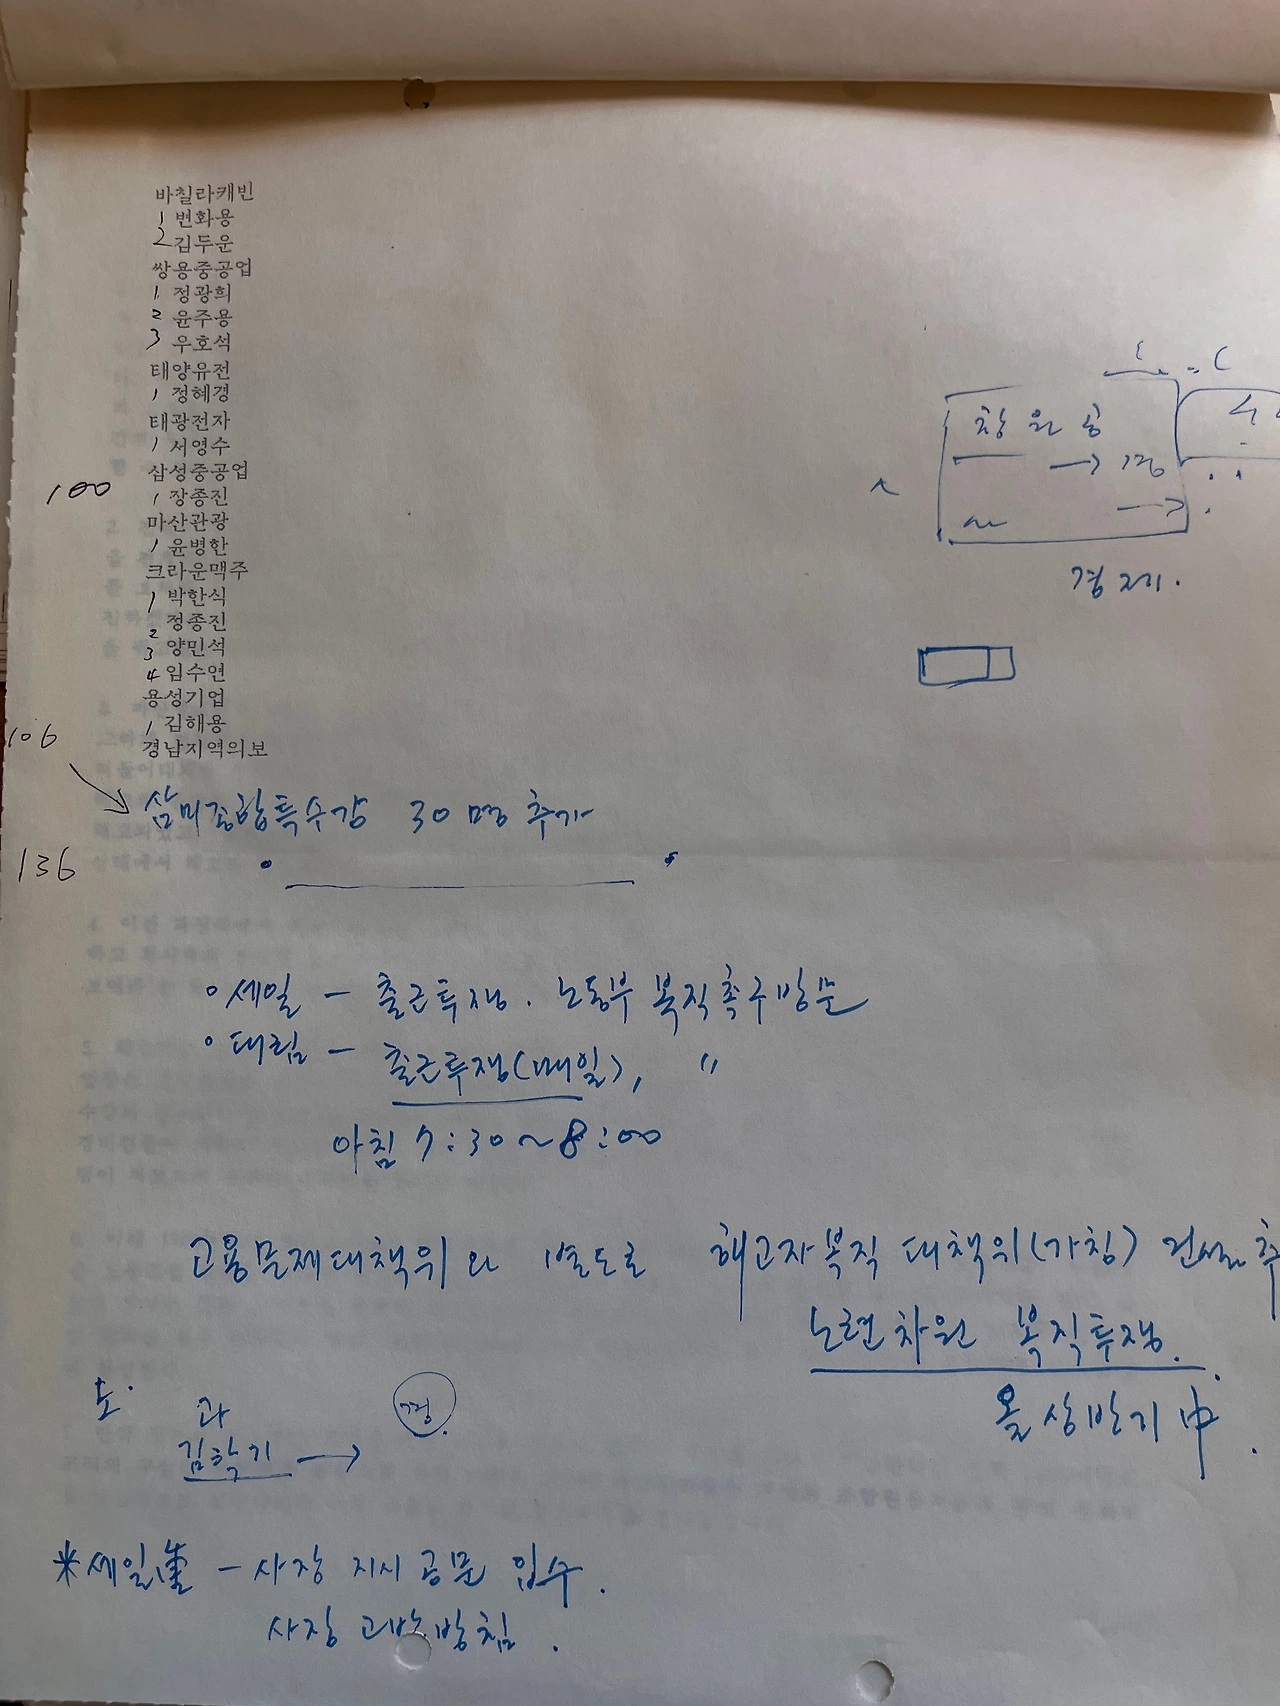 바칠라캐빈
1 변화용
2 김두운
쌍용중공업
1 정광희
2 윤주용
3 우호석
태양유전
1 정혜경
태광전자
1 서영수
삼성중공업
100 1 장종진
마산관광
1 윤병한
크라운맥주
1 박한식
2 정종진
3 양민석
4 임수연
용성기업
1 김해용
106 경남지역의보
삼미종합특수강 30명 추가
136
창원공
경제.
○세일 - 출근투쟁. 노동부 복직촉구방문
○대림 - 출근투쟁(매일), 〃
아침 7:30~8:00
고용문제대책위와 별도로 해고자복직 대책위(가칭) 건설추
노련차원 복직투쟁.
몰상반기中.
과
김학기 → 경.
*세일 - 사장 지시 공문 입수.
사장 고발방침.